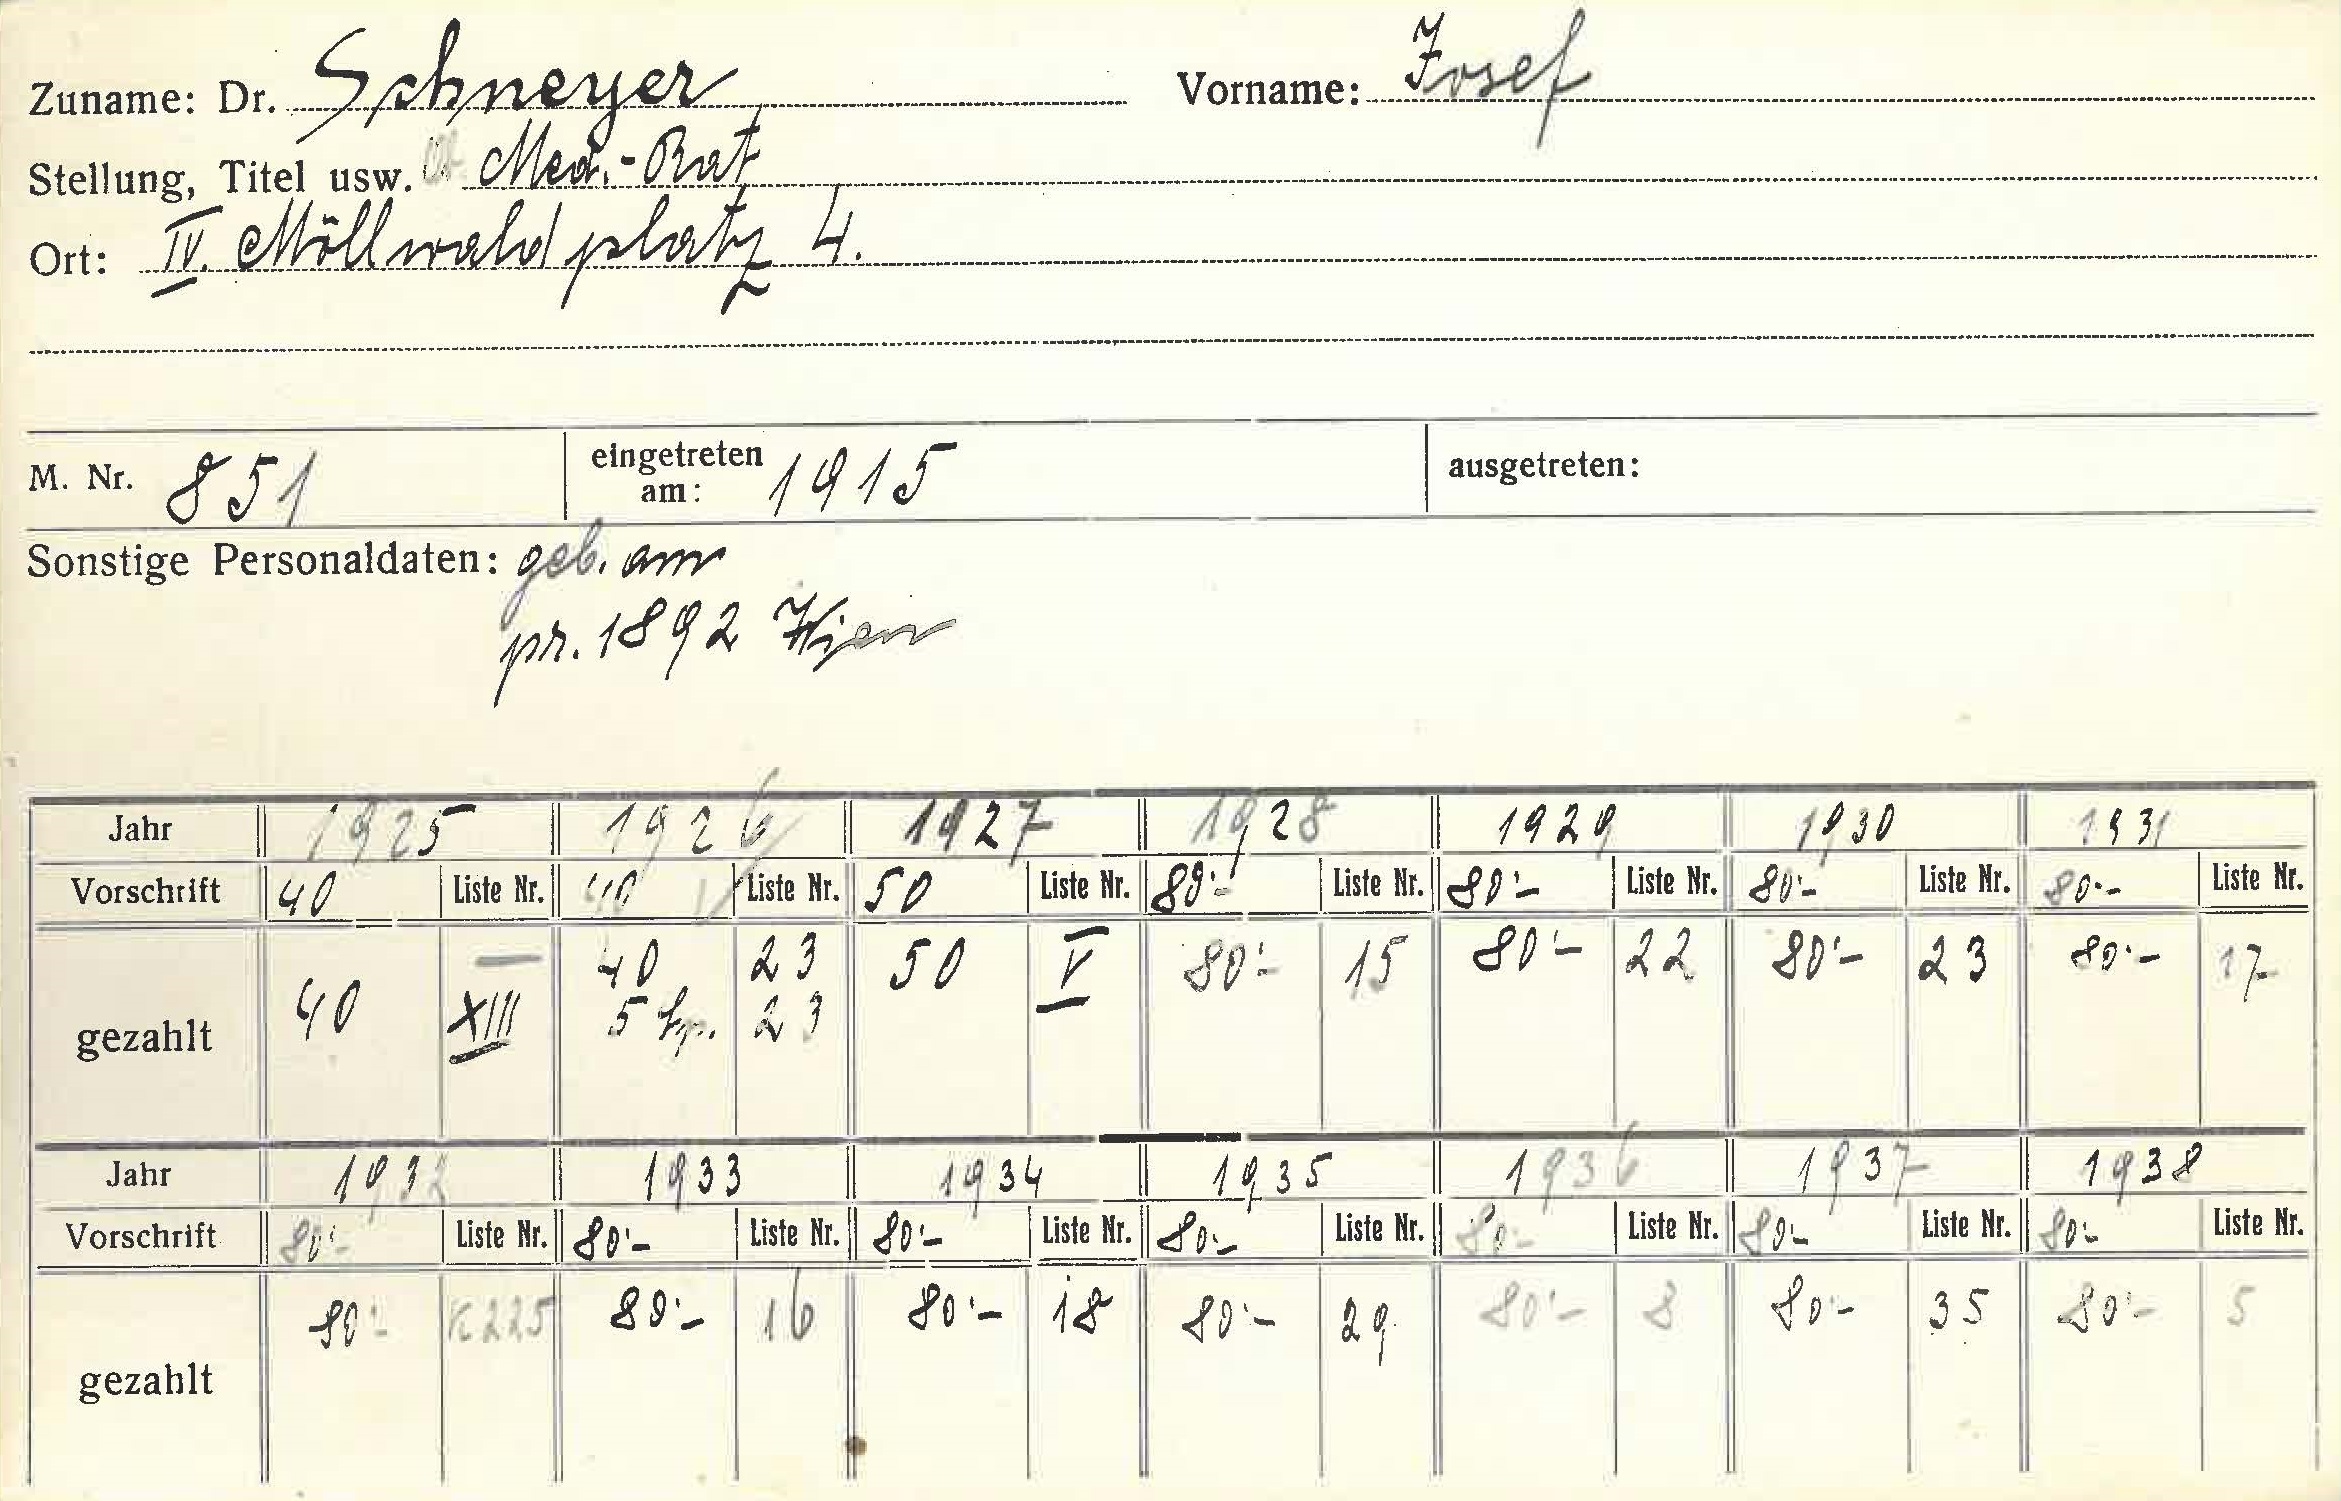 Zuname: Dr. Schneyer Vorname: Josef
Stellung, Titel usw. Med.-Rat
Ort: IV. Möllwaldplatz 4.
M. Nr. 851 eingetreten am: 1915 ausgetreten:
Sonstige Personaldaten: geb. am
pr. 1892 Wien
Jahr 1925 1926 1927 1928 1929 1930 1931
Vorschrift 40 Liste Nr. 40 Liste Nr. 50 Liste Nr. 80'- Liste Nr. 80'- Liste Nr. 80'- Liste Nr. 80'- Liste Nr.
gezahlt 40 XIII 40 23 50 V 80'- 15 80'- 22 80'- 23 80'- 17
5 23
Jahr 1932 1933 1934 1935 1936 1937 1938
Vorschrift 80'- Liste Nr. 80'- Liste Nr. 80'- Liste Nr. 80'- Liste Nr. 80'- Liste Nr. 80'- Liste Nr. 80'- Liste Nr.
gezahlt 80'- 80'- 16 80'- 18 80'- 29 80'- 8 80'- 35 80'- 5